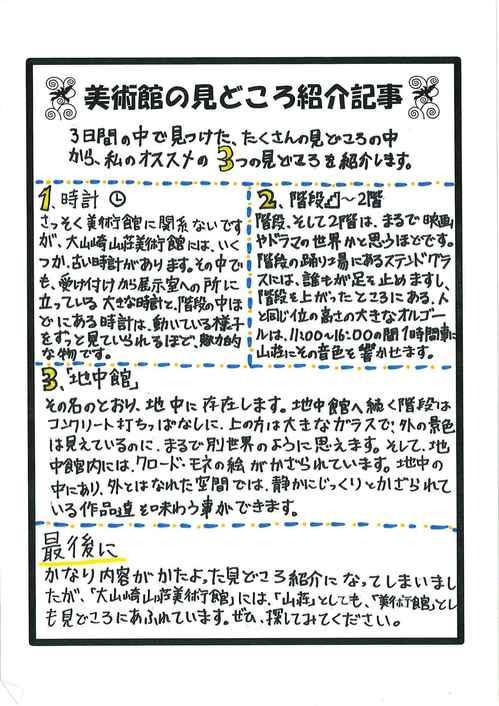 美術館の見どころ紹介記事
3日間の中で見つけた、たくさんの見どころの中
から、私のオススメの3つの見どころを紹介します。
1、時計
さっそく美術館に関係ないです
が、大山崎山荘美術館には、いく
つか、古い時計があります。その中で
も、受け付けから展示室への所に
立っている大きな時計と、階段の中ほ
どにある時計は、動いている様子
をずっと見ていられるほど、魅力的
な物です。
2、階段〜2階
階段、そして2階は、まるで映画
やドラマの世界かと思うほどです。
階段の踊り場にあるステンドグラ
スには、誰もが足を止めますし、
階段を上がったところにある、人
と同じ位の高さの大きなオルゴ
ールは、11:00〜16:00の間1時間事に
山荘にその音色を響かせます。
3、「地中館」
その名のとおり、地中に存在します。地中館へ続く階段は
コンクリート打ちっぱなしに、上の方は大きなガラスで、外の景色
は見えているのに、まるで別世界のように思えます。そして、地
中館内には、クロード・モネの絵がかざられています。地中の
中にあり、外とはなれた空間では、静かにじっくりとかざられて
いる作品達を味わう事ができます。
最後に
かなり内容がかたよった見どころ紹介になってしまいまし
たが、「大山崎山荘美術館」には、「山荘」としても、「美術館」とし
も見どころにあふれています。ぜひ、探してみてください。